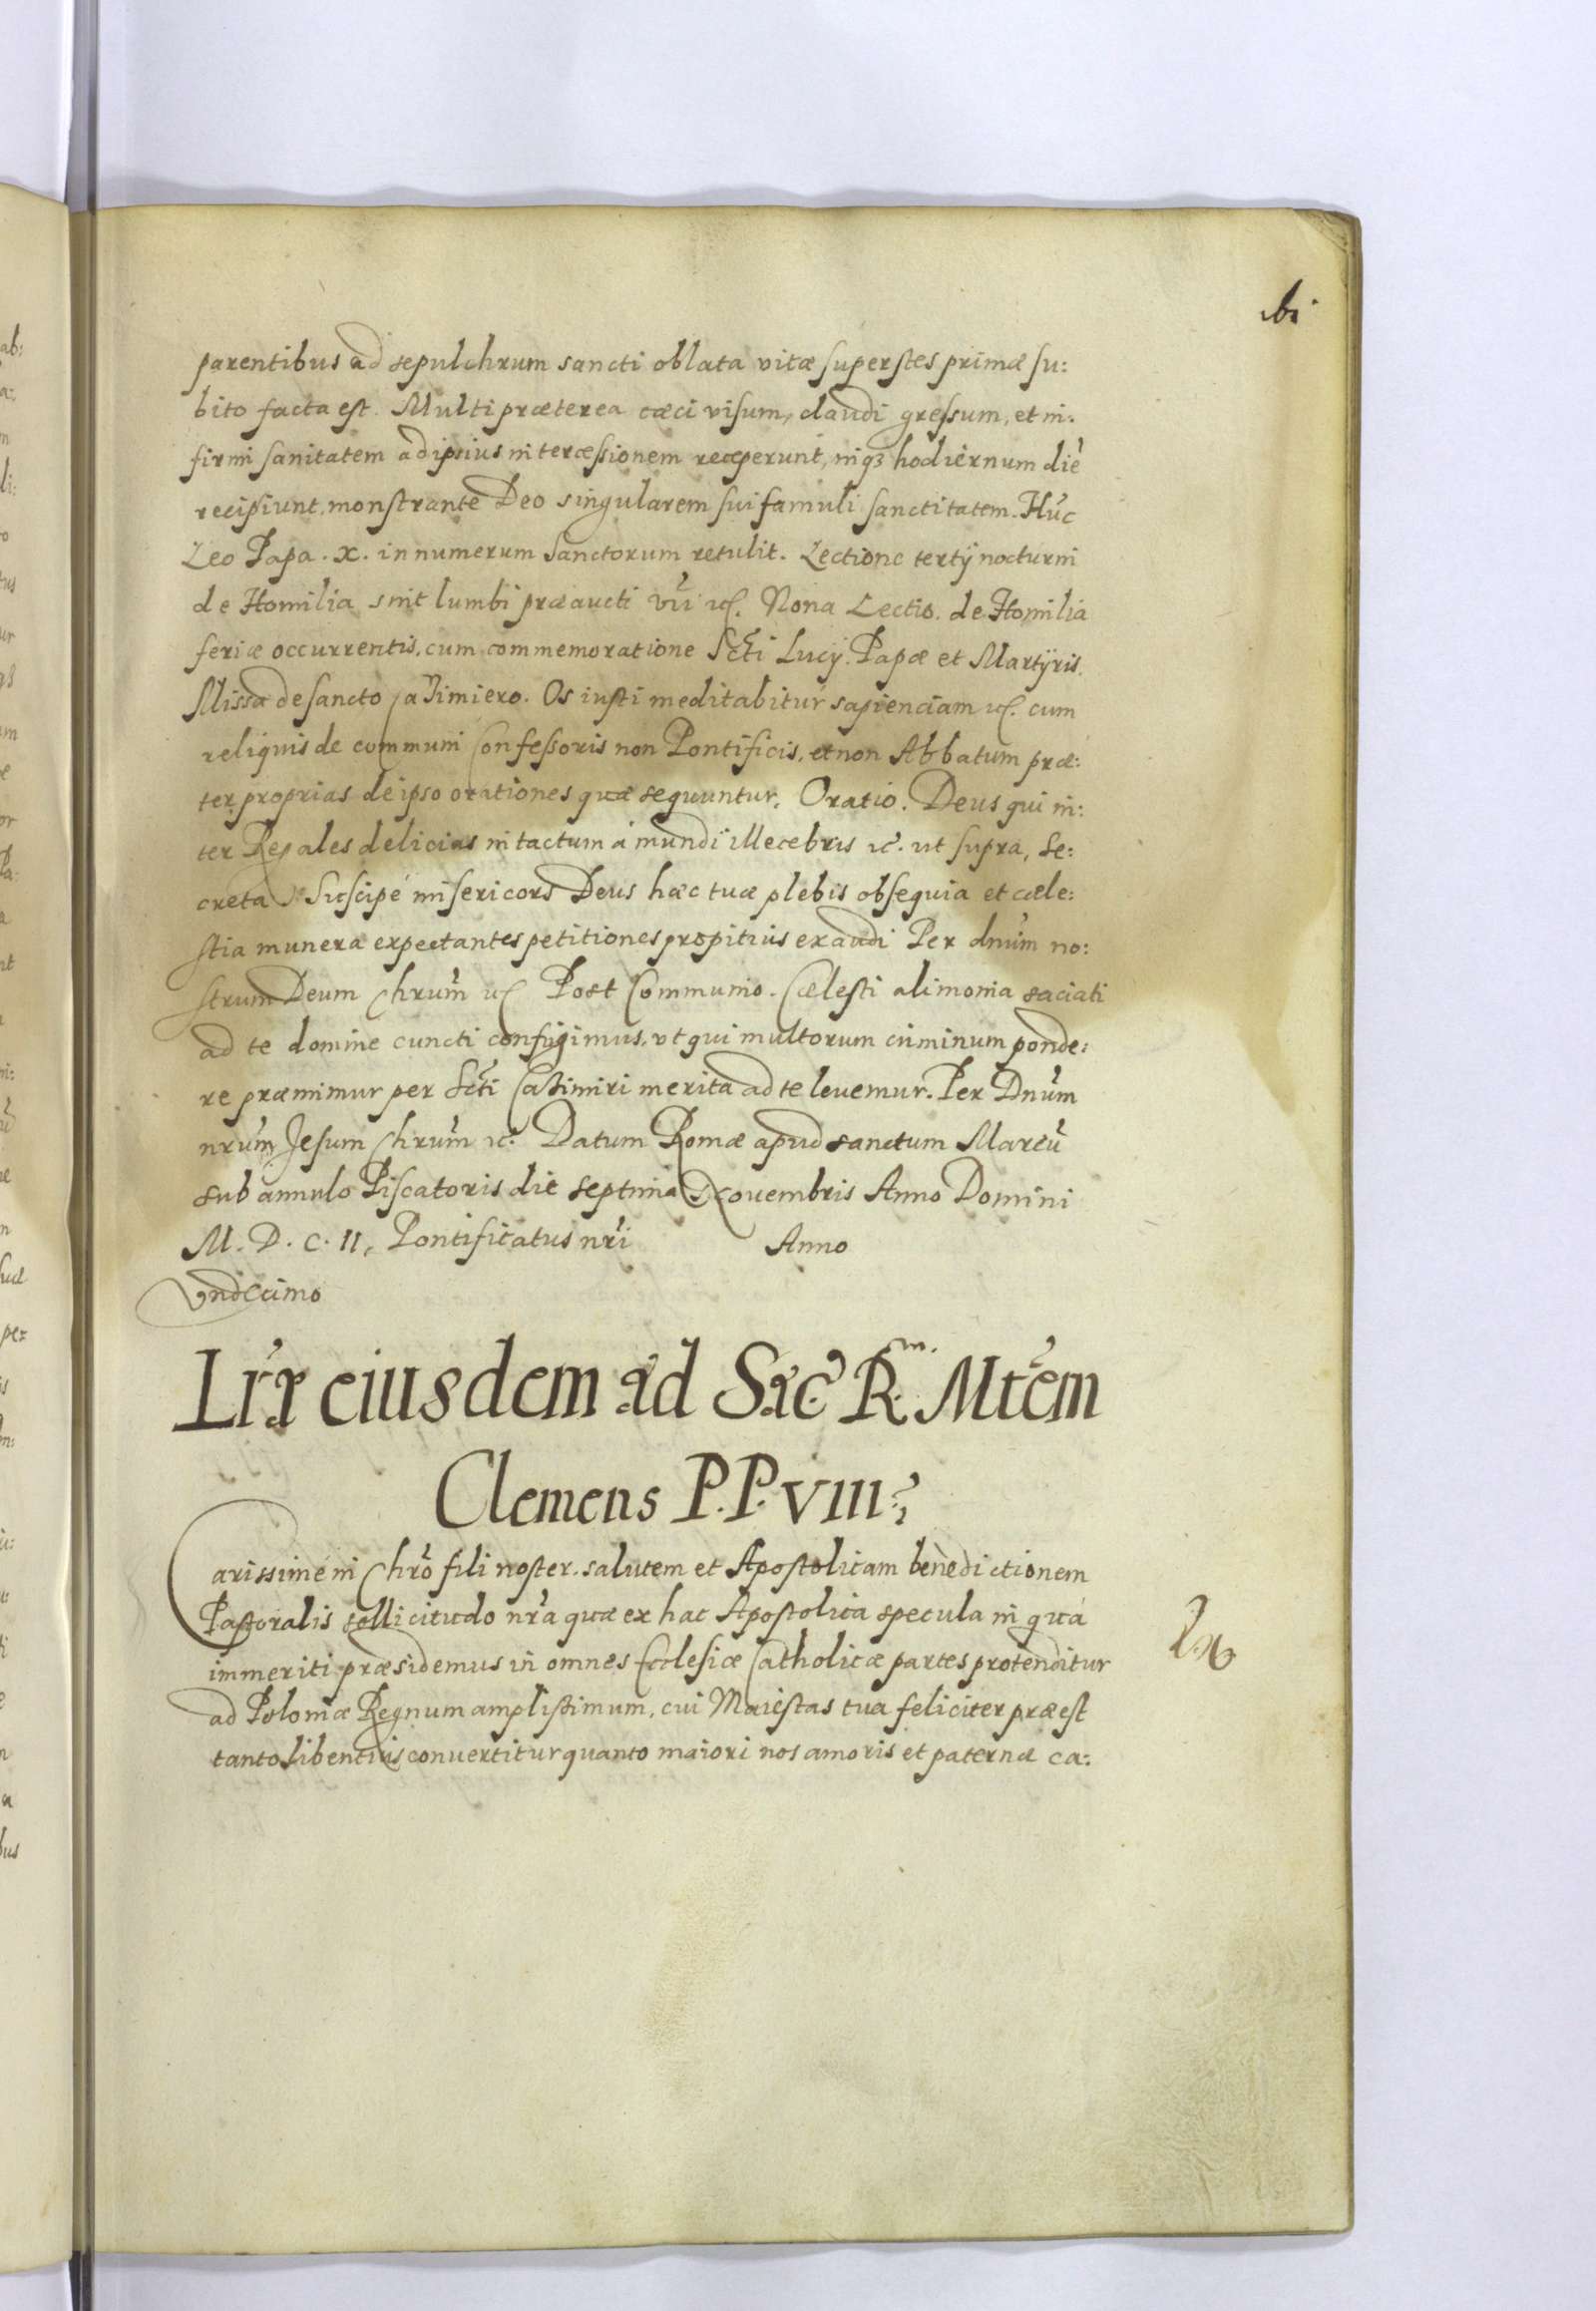 parentibus ad sepulchrum sancti oblata vitæ superstes primæ su:
bito facta est. Multi præterea cæci visum, claudi gressum, et in:
firmi sanitatem ad ipsius intercæssionem recæperunt, inqꝫ hodiernum diẽ
recipiunt, monstrante Deo singularem sui famuli sanctitatem. Hũc
Leo Papa. X. in numerum sanctorum retulit. Lectione tertij nocturni
de Homilia sint lumbi præcincti vr̃i ꝛc. Nona Lectio. de Homilia
feriæ occurrentis, cum commemoratione Sc̃ti Lucij Papæ et Martÿris.
Missa de sancto Casimiero. Os iusti meditabitur sapienciam ꝛc. cum
reliquis de communi Confessoris non Pontificis, et non Abbatum præ:
ter proprias de ipso orationes quæ sequuntur. Oratio. Deus qui in:
ter Regales delicias intactum á mundi illecebris ꝛc. ut supra, Se:
creta Suscipe misericors Deus hæc tuæ plebis obsequia et cæle:
stia munera expectantes petitiones propitius exaudi Per dnũm no:
strum Deum Chrũm ꝛc Post Communio. Cælesti alimonia saciati
ad te domine cuncti confugimus, vt qui multorum criminum ponde:
re præmimur per Sc̃ti Casimiri merita ad te leuemur. Per Dnũm
nrũm Jesum Chrũm ꝛc. Datum Romæ apud sanctum Marcũ
sub annulo Piscatoris die septima Nouembris Anno Domini
M. D. C. II, Pontificatus nr̃i Anno
Vndecimo
Lr̃æ eiusdem ad Sac̃ R.m. Mtẽm
Clemens P.P. VIII.
Carissime in Chrõ fili noster. salutem et Apostolicam benedictionem
Pastoralis sollicitudo nr̃a quæ ex hac Apostolica specula in quá
immeriti præsidemus in omnes Ecclesiæ Catholicæ partes protenditur
ad Poloniæ Regnum amplissimum, cui Maiestas tua feliciter præest
tanto libentius conuertitur quanto maiori nos amoris et paternæ ca: